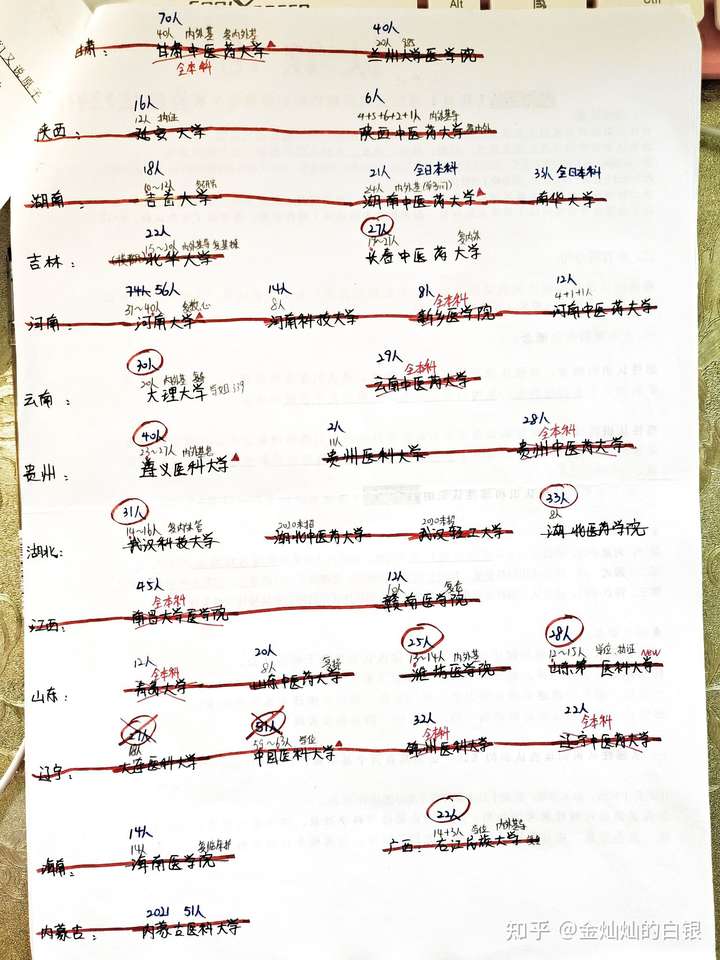 70人 40人
40人 内外基 20人
甘肃: 甘肃中医药大学 兰州大学医学院
全本科
16人 6人
12人 4+5+6+2+1人
陕西: 延安大学 陕西中医药大学
18人 21人 全日本科 33人 全日本科
24人 内外基
湖南: 吉首大学 湖南中医药大学 南华大学
22人 27人
15~20人 内外基
吉林: 北华大学 长春中医药大学
74人 56人 14人 8人 12人
31~40人 8人 全本科 4+1+1人
河南: 河南大学 河南科技大学 新乡医学院 河南中医药大学
30人 29人
20人 内外基 全本科
云南: 大理大学 云南中医药大学
40人 2人 28人
23~27人 11人 全本科
贵州: 遵义医科大学 贵州医科大学 贵州中医药大学
31人 33人
14~16人 2020未招 2020未招 8人
湖北: 武汉科技大学 湖北中医药大学 武汉轻工大学 湖北医药学院
45人 12人
全本科 10人
江西: 南昌大学医学院 赣南医学院
12人 20人 25人 28人
全本科 8人 13~14人 内外基 12~15人 学位 NEW
山东: 青岛大学 山东中医药大学 潍坊医学院 山东第一医科大学
51人 32人 22人
59~63人 学位 全本科 全本科
辽宁: 大连医科大学 中国医科大学 锦州医科大学 辽宁中医药大学
14人 22人
14人 14+5人 学位
海南: 海南医学院 广西: 右江民族大学
2021 51人
内蒙古: 内蒙古医科大学
知乎 @金灿灿的白银